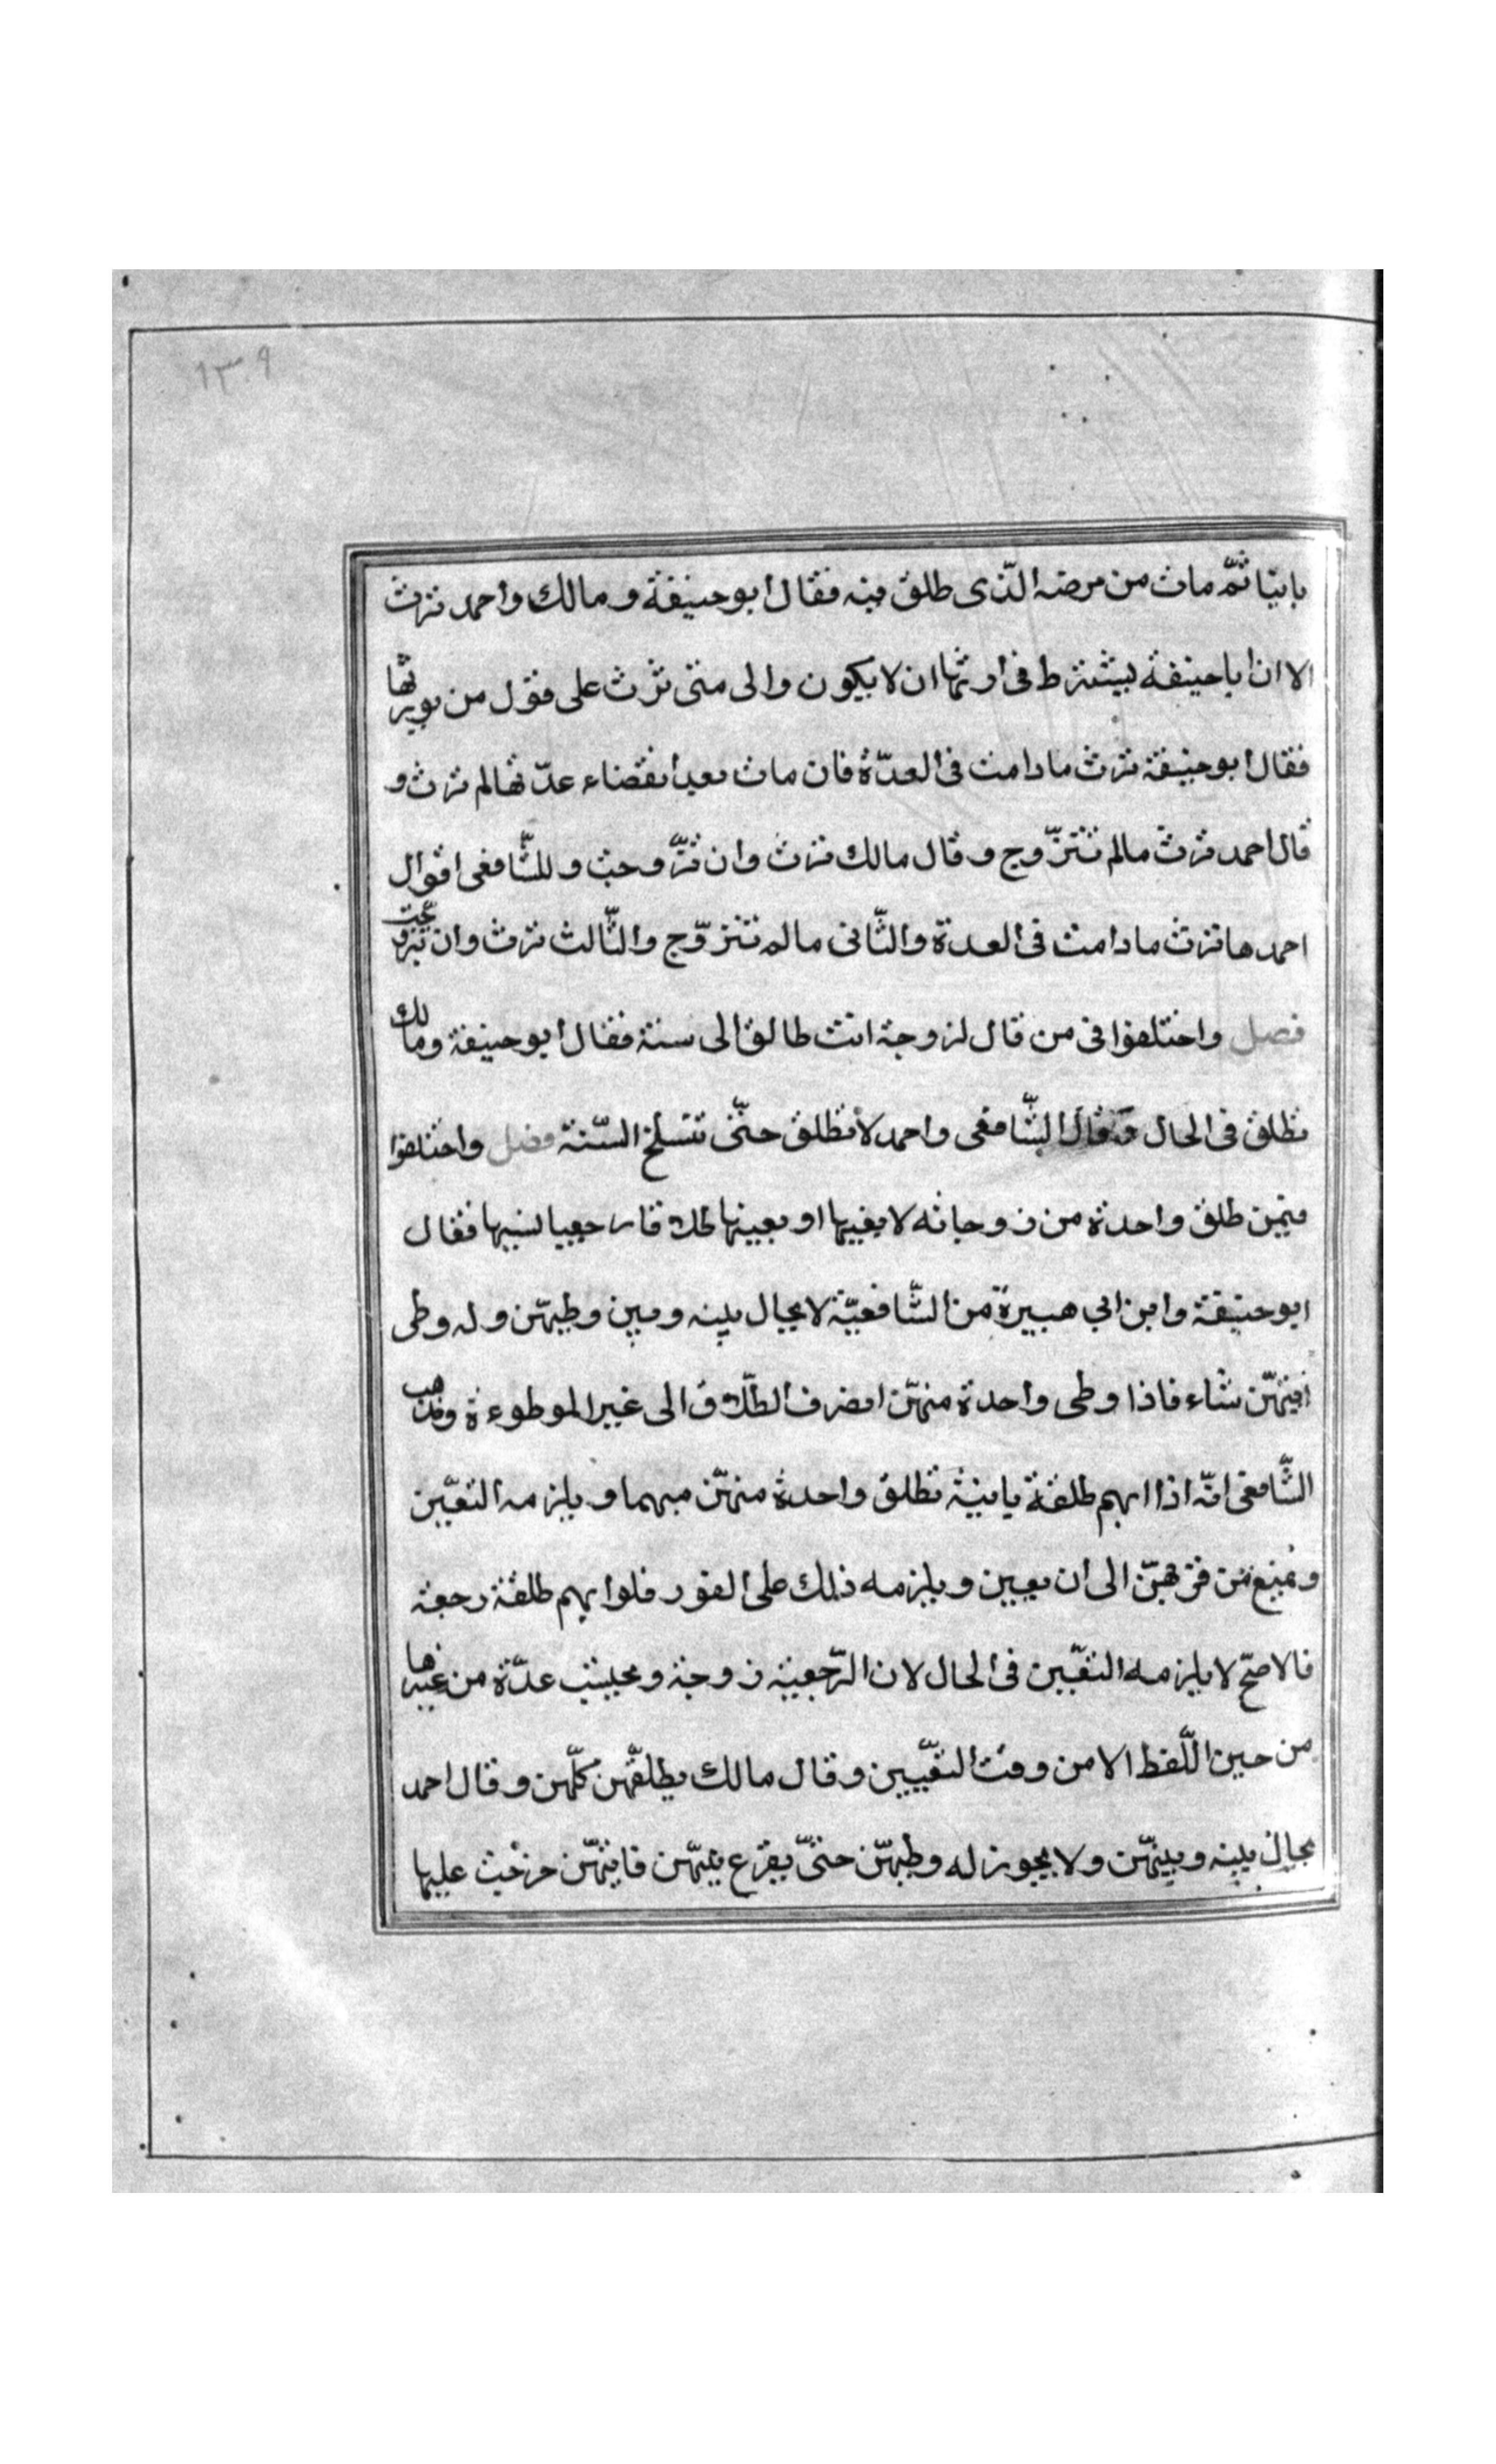 ١٣٠٩
بايتا ثمّ مات من مرضه الّذى طلق فيه فقال ابو حنيفة و مالك واحمد ترث
الا ان اباحنيفة يشترط فى ارثها ان لا يكون والى متى ترث على قول من يورثها
فقال ابو حنيفة ترث ما دامت فى العدّة فان مات بعد انقضاء عدّتها لم ترث و
قال احمد ترث مالم تتزّوج و قال مالك ترث وان تزّوجت و للشّافعى اقوال
احمدها ترث ما دامت فى العدة والثّانى ما لم تتزوّج والثّالث ترث وان تزوجت
فصل واختلفوا فى من قال لزوجة انت طالق الى سنة فقال ابو حنيفة ومالك
تطلق فى الحال وقال الشّافعى واحمد لا تطلق حتّى تنسلخ السّنة فصل واختلفوا
فيمن طلق واحدة من زوجاته لا بعينها او بعينها فقال
ابو حنيفة وابن ابي هبيرة من الشّافعيّة لا يحال بينه وبين وطيهّن وله وطى
ايتهّن شاء فاذا وطى واحدة منهّن انصرف الطّلاق الى غير الموطوءة وذهب
الشّافعى انّه اذا ابهم طلقة باينة تطلق واحدة منهّن مبهما و يلزمه التعيّين
ويمنع من قربهّن الى ان يعين و يلزمه ذلك على الفور فلو ابهم طلقة رجعة
فالاصحّ لا يلزمه التعّيين فى الحال لان الرّجعية زوجة و عدّة من غيرها
من حين اللّفظ الا من وقت التعّيين وقال مالك يطلقّهن كلّهن وقال احمد
يحال بينه وبينهّن ولا يجوز له وطيهّن حتىّ يقرع بينهّن فايتهّن خرجت عليها